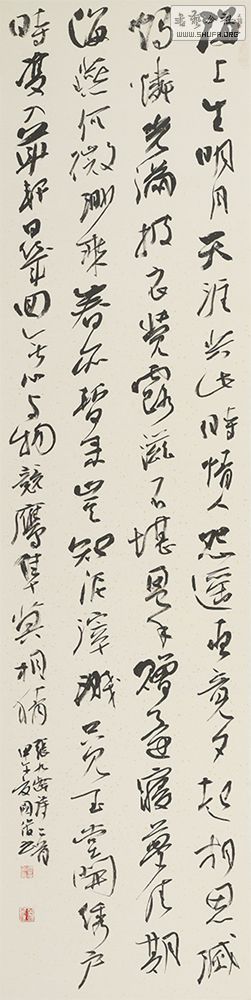 海上生明月天涯共此時情人怨遥夜竟夕起相思滅
燭憐光滿披衣覺露滋不堪盈手贈還寢夢佳期
海燕何微渺乘春亦暫來豈知泥滓濺只見玉堂開綉户
時雙入華軒日幾回無心與物競鷹隼莫相猜
張九齡詩二首
甲午夏國
WWW.SHUFA.ORG